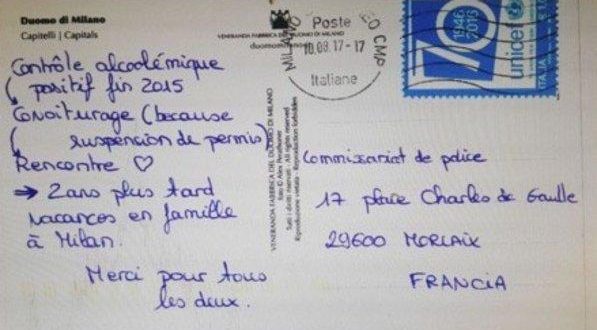 Duomo di Milano
Capitelli | Capitals
VENERANDA FABBRICA DEL DUOMO DI MILANO
Poste
MILANO
CMP
10.08.17-17
Italiane
1946
2016
70
unicef
ITALIA
Contrôle alcoolémique
positif fin 2015
Covoiturage (because
suspencion de permis)
Rencontre ♡
→ 2 ans plus tard
vacances en famille
à Milan.
Merci pour tous
les deux.
VENERANDA FABBRICA DEL DUOMO DI MILANO
Tutti i diritti riservati - All rights reserved
Riproduzione vietata - Reproduction forbidden
Commissariat de police
17 place Charles de Gaulle
29600 MORLAIX
FRANCIA